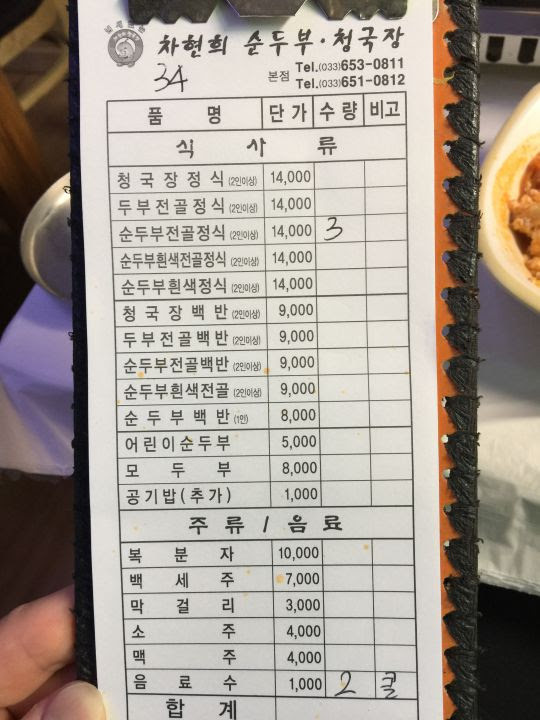 차현희 순두부·청국장
34
본점 Tel.(033)653-0811
Tel.(033)651-0812
품 명 단가 수량 비고
식 사 류
청국장정식 (2인이상) 14,000
두부전골정식 (2인이상) 14,000
순두부전골정식 (2인이상) 14,000 3
순두부흰색전골정식 (2인이상) 14,000
순두부흰색정식 (2인이상) 14,000
청국장백반 (2인이상) 9,000
두부전골백반 (2인이상) 9,000
순두부전골백반 (2인이상) 9,000
순두부흰색전골 (2인이상) 9,000
순두부백반 (1인) 8,000
어린이순두부 5,000
모 두 부 8,000
공기밥(추가) 1,000
주류 / 음료
복 분 자 10,000
백 세 주 7,000
막 걸 리 3,000
소 주 4,000
맥 주 4,000
음 료 수 1,000 2 콜
합 계